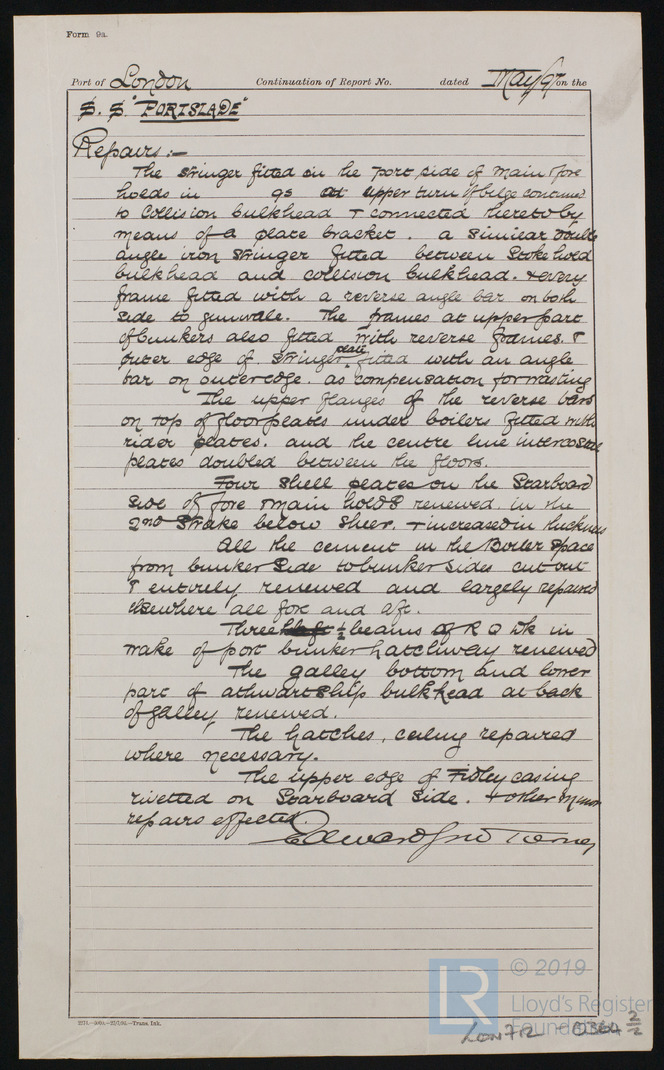 Form 9a.
Port of London Continuation of Report No. dated May/97 on the
S. S. "PORTSLADE"
Repairs :-
The stringer fitted in the port side of main & fore
holds in 95 at upper turn of bilge continued
to Collision bulkhead & connected thereto by
means of a plate bracket. a similar double
angle iron stringer fitted between Stokehold
bulkhead and collision bulkhead. & every
frame fitted with a reverse angle bar on both
side to gunwale. The frames at upper part
of bunkers also fitted with reverse frames. &
outer edge of stringer plate fitted with an angle
bar on outer edge. as compensation for wasting
The upper flanges of the reverse bars
on top of floorplates under boilers fitted with
rider plates. and the centre line intercostal
plates doubled between the floors.
Four shell plates on the Starboard
side of fore & main holds renewed. in the
2nd Strake below sheer. & increased in thickness
All the cement in the Boiler space
from bunker side to bunker sides cut out
& entirely renewed and largely repaired
elsewhere all fore and aft.
Three ½ beams of R Q Dk in
wake of port bunker hatchway renewed
The galley bottom and lower
part of athwartship bulkhead at back
of galley renewed.
The hatches, ceiling repaired
where necessary.
The upper edge of Fidley casing
rivetted on Starboard Side. & other minor
repairs effected.
Edward
LR © 2019
Lloyd's Register
Foundation
LON712 - 0364 2/2